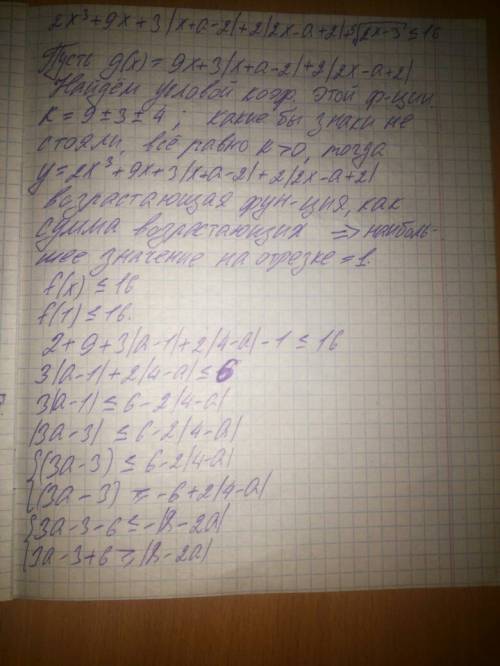 2x³+9x+3|x+a-2|+2|2x-a+2|+⁵√2x-3 ≤ 16
Пусть g(x) = 9x+3|x+a-2|+2|2x-a+2|
Найдём угловой коэф. этой ф-ции.
k = 9 ± 3 ± 4 ; какие бы знаки не
стояли, всё равно k>0, тогда
y = 2x³+9x+3|x+a-2|+2|2x-a+2|
возрастающая фун-ция, как
сумма возрастающих => наиболь-
шее значение на отрезке = 1.
f(x) ≤ 16
f(1) ≤ 16.
2+9+3|a-1|+2|4-a|-1 ≤ 16
3|a-1|+2|4-a| ≤ 6
3|a-1| ≤ 6-2|4-a|
|3a-3| ≤ 6-2|4-a|
{(3a-3) ≤ 6-2|4-a|
{(3a-3) ≥ -6+2|4-a|
{3a-3-6 ≤ -|8-2a|
{3a-3+6 ≥ |8-2a|